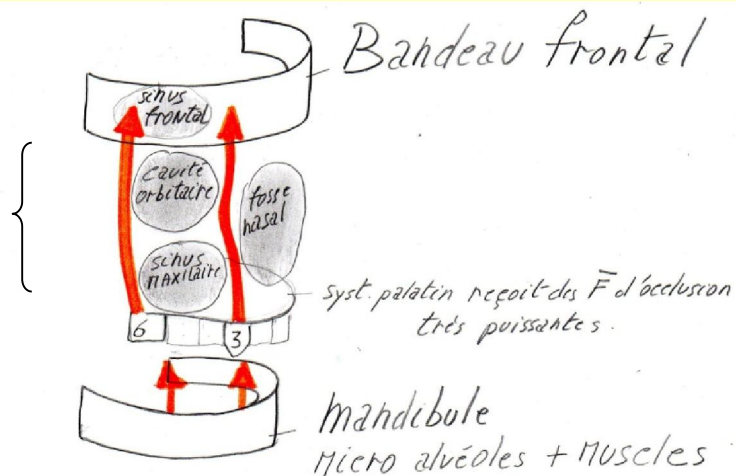 Bandeau frontal
sinus
frontal
cavité
orbitaire
fosse
nasal
sinus
maxilaire
syst. palatin reçoit des F̅ d'occlusion
très puissantes.
6
3
mandibule
Micro alvéoles + Muscles